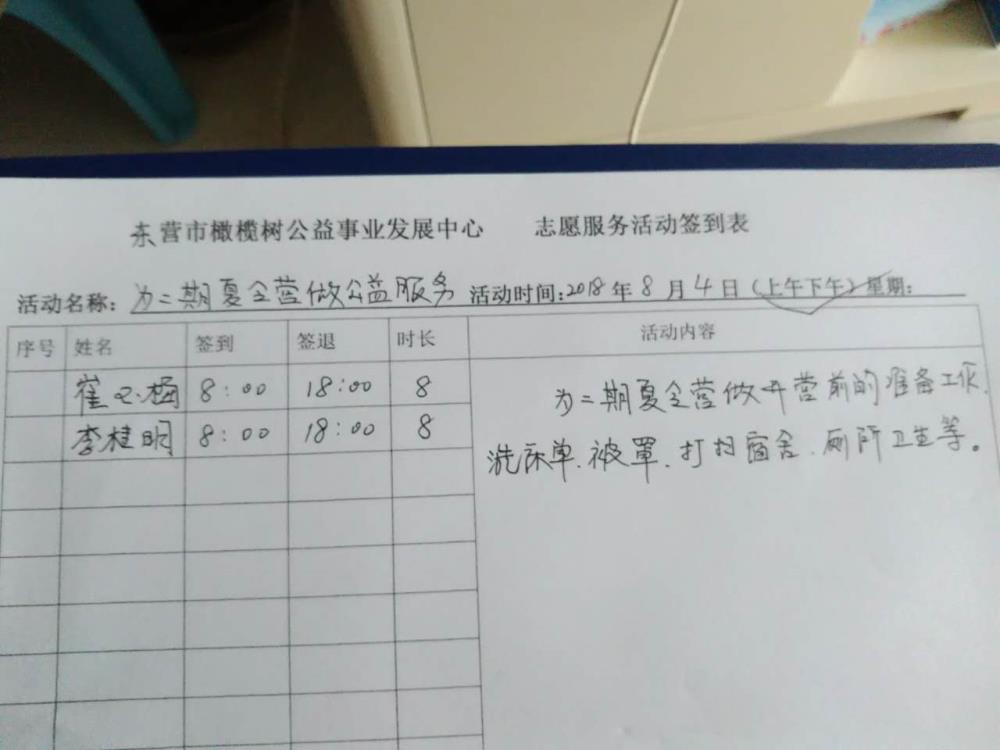 东营市橄榄树公益事业发展中心 志愿服务活动签到表
活动名称：为二期夏令营做公益服务 活动时间：2018年8月4日（上午下午）星期：
序号 姓名 签到 签退 时长 活动内容
崔 梅 8：00 18：00 8
李桂明 8：00 18：00 8
为二期夏令营做开营前的准备工作.
洗床单.被罩.打扫宿舍.厕所卫生等。